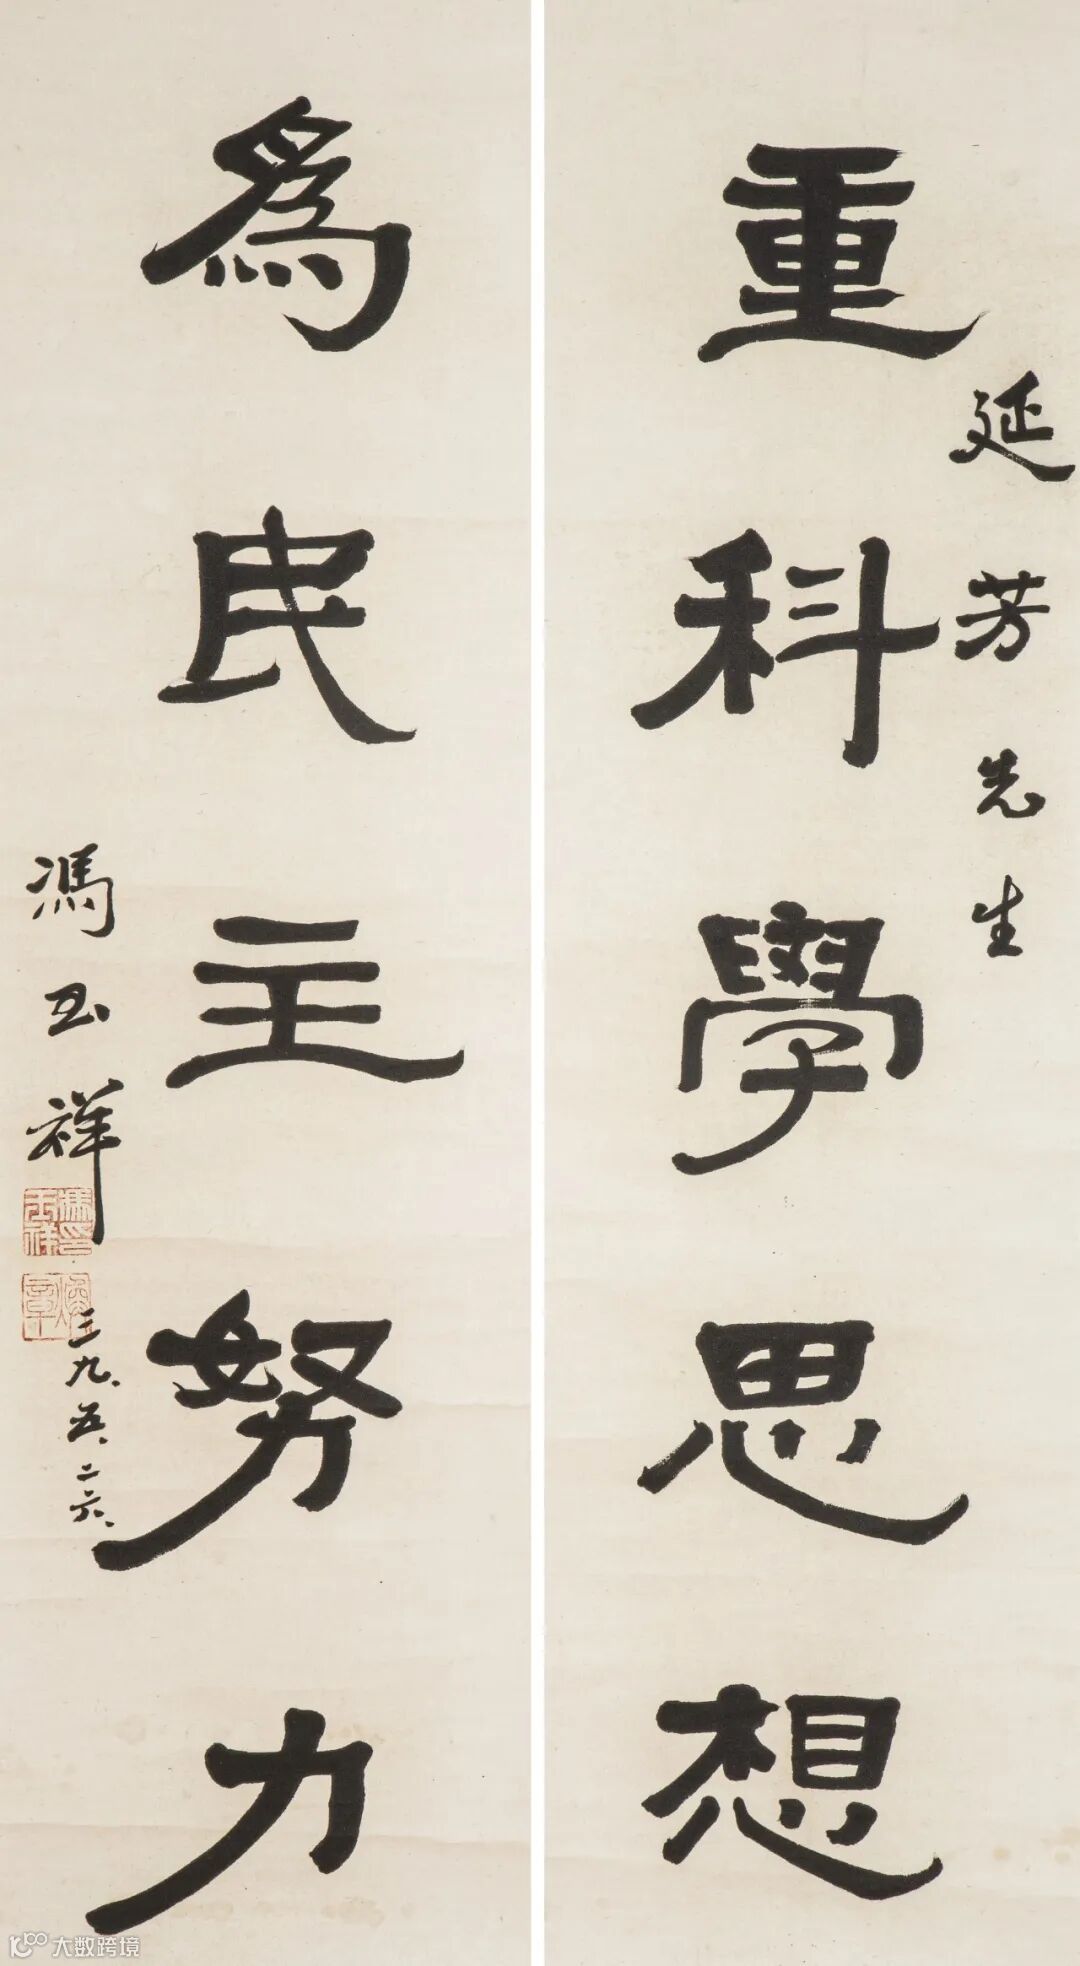 重科學思想
延芳先生
為民主努力
馮玉祥
馮玉祥印
三九、五、二六、
大数跨境